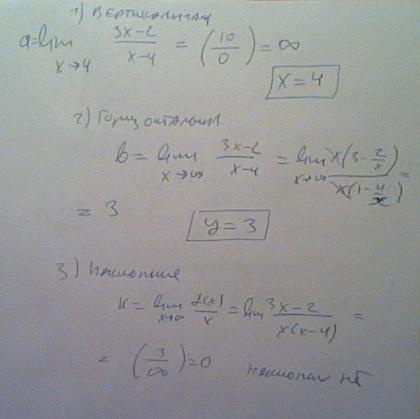 1) Вертикальная
a=lim x→4 3x-2/x-4 = (10/0) = ∞
x=4
2) Горизонтальная
b = lim x→∞ 3x-2/x-4 = lim x→∞ x(3-2/x)/x(1-4/x) =
= 3
y=3
3) Наклонная
k = lim x→∞ f(x)/x = lim 3x-2/x(x-4) =
= (3/∞)=0 наклонных нет